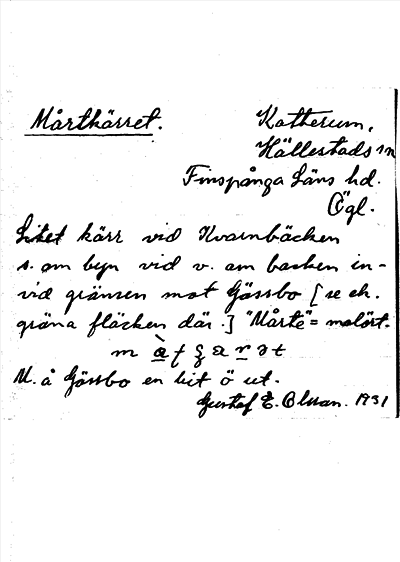 Mårtkärret.
Katterum,
Hällestads sn
Finspånga Läns hd.
Ögl.
Litet kärr vid Kvarnbäcken
s. om byn vid v. om backen in-
vid gränsen mot Gässbo [se ek.
gröna fläcken där.] "Mårte" = malört.
M. å Gässbo en bit ö ut.
Gustaf E. Olsson. 1931